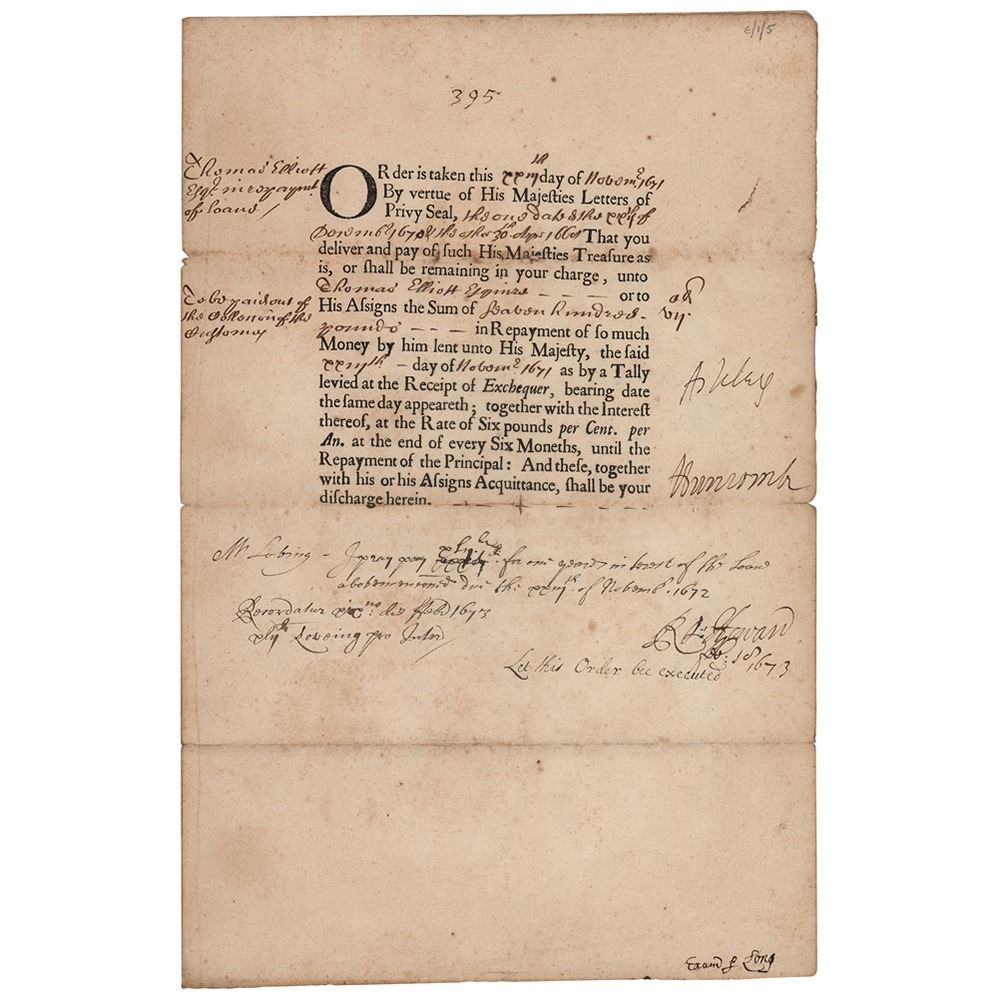 E/1/5
395
Thomas Elliott
Esqr. in repaymt.
of loane /
ORder is taken this xxiijth day of Novemr. 1671
By vertue of His Majeſties Letters of
Privy Seal, the one dated the xxth of
Decembr. 1670 & the other 30th Apr: That you
deliver and pay of ſuch His Majeſties Treaſure as
is, or ſhall be remaining in your charge, unto
Thomas Elliott Esquire - - - - or to
His Aſsigns the Sum of Seaven hundred -
pounds - - - in Repayment of ſo much
Money by him lent unto His Majeſty, the ſaid
xxiijth - day of Novemr. 1671 as by a Tally
levied at the Receipt of Exchequer, bearing date
the ſame day appeareth; together with the Intereſt
thereof, at the Rate of Six pounds per Cent. per
An. at the end of every Six Moneths, until the
Repayment of the Principal: And theſe, together
with his or his Aſsigns Acquittance, ſhall be your
diſcharge herein.
To be paid out of
the Collection of the
Customes
Ashley
JDuncombe
Mr. Loving - I pray pay for one years interest of the Loane
abovemenconed due the xxiijth. of Novemb. 1672
Recordatur die ffebr 1673
xlijli Loveing pro Inter /
Ro: Howard
feb: 18 1673
Let this Order bee executed
Examd p Long